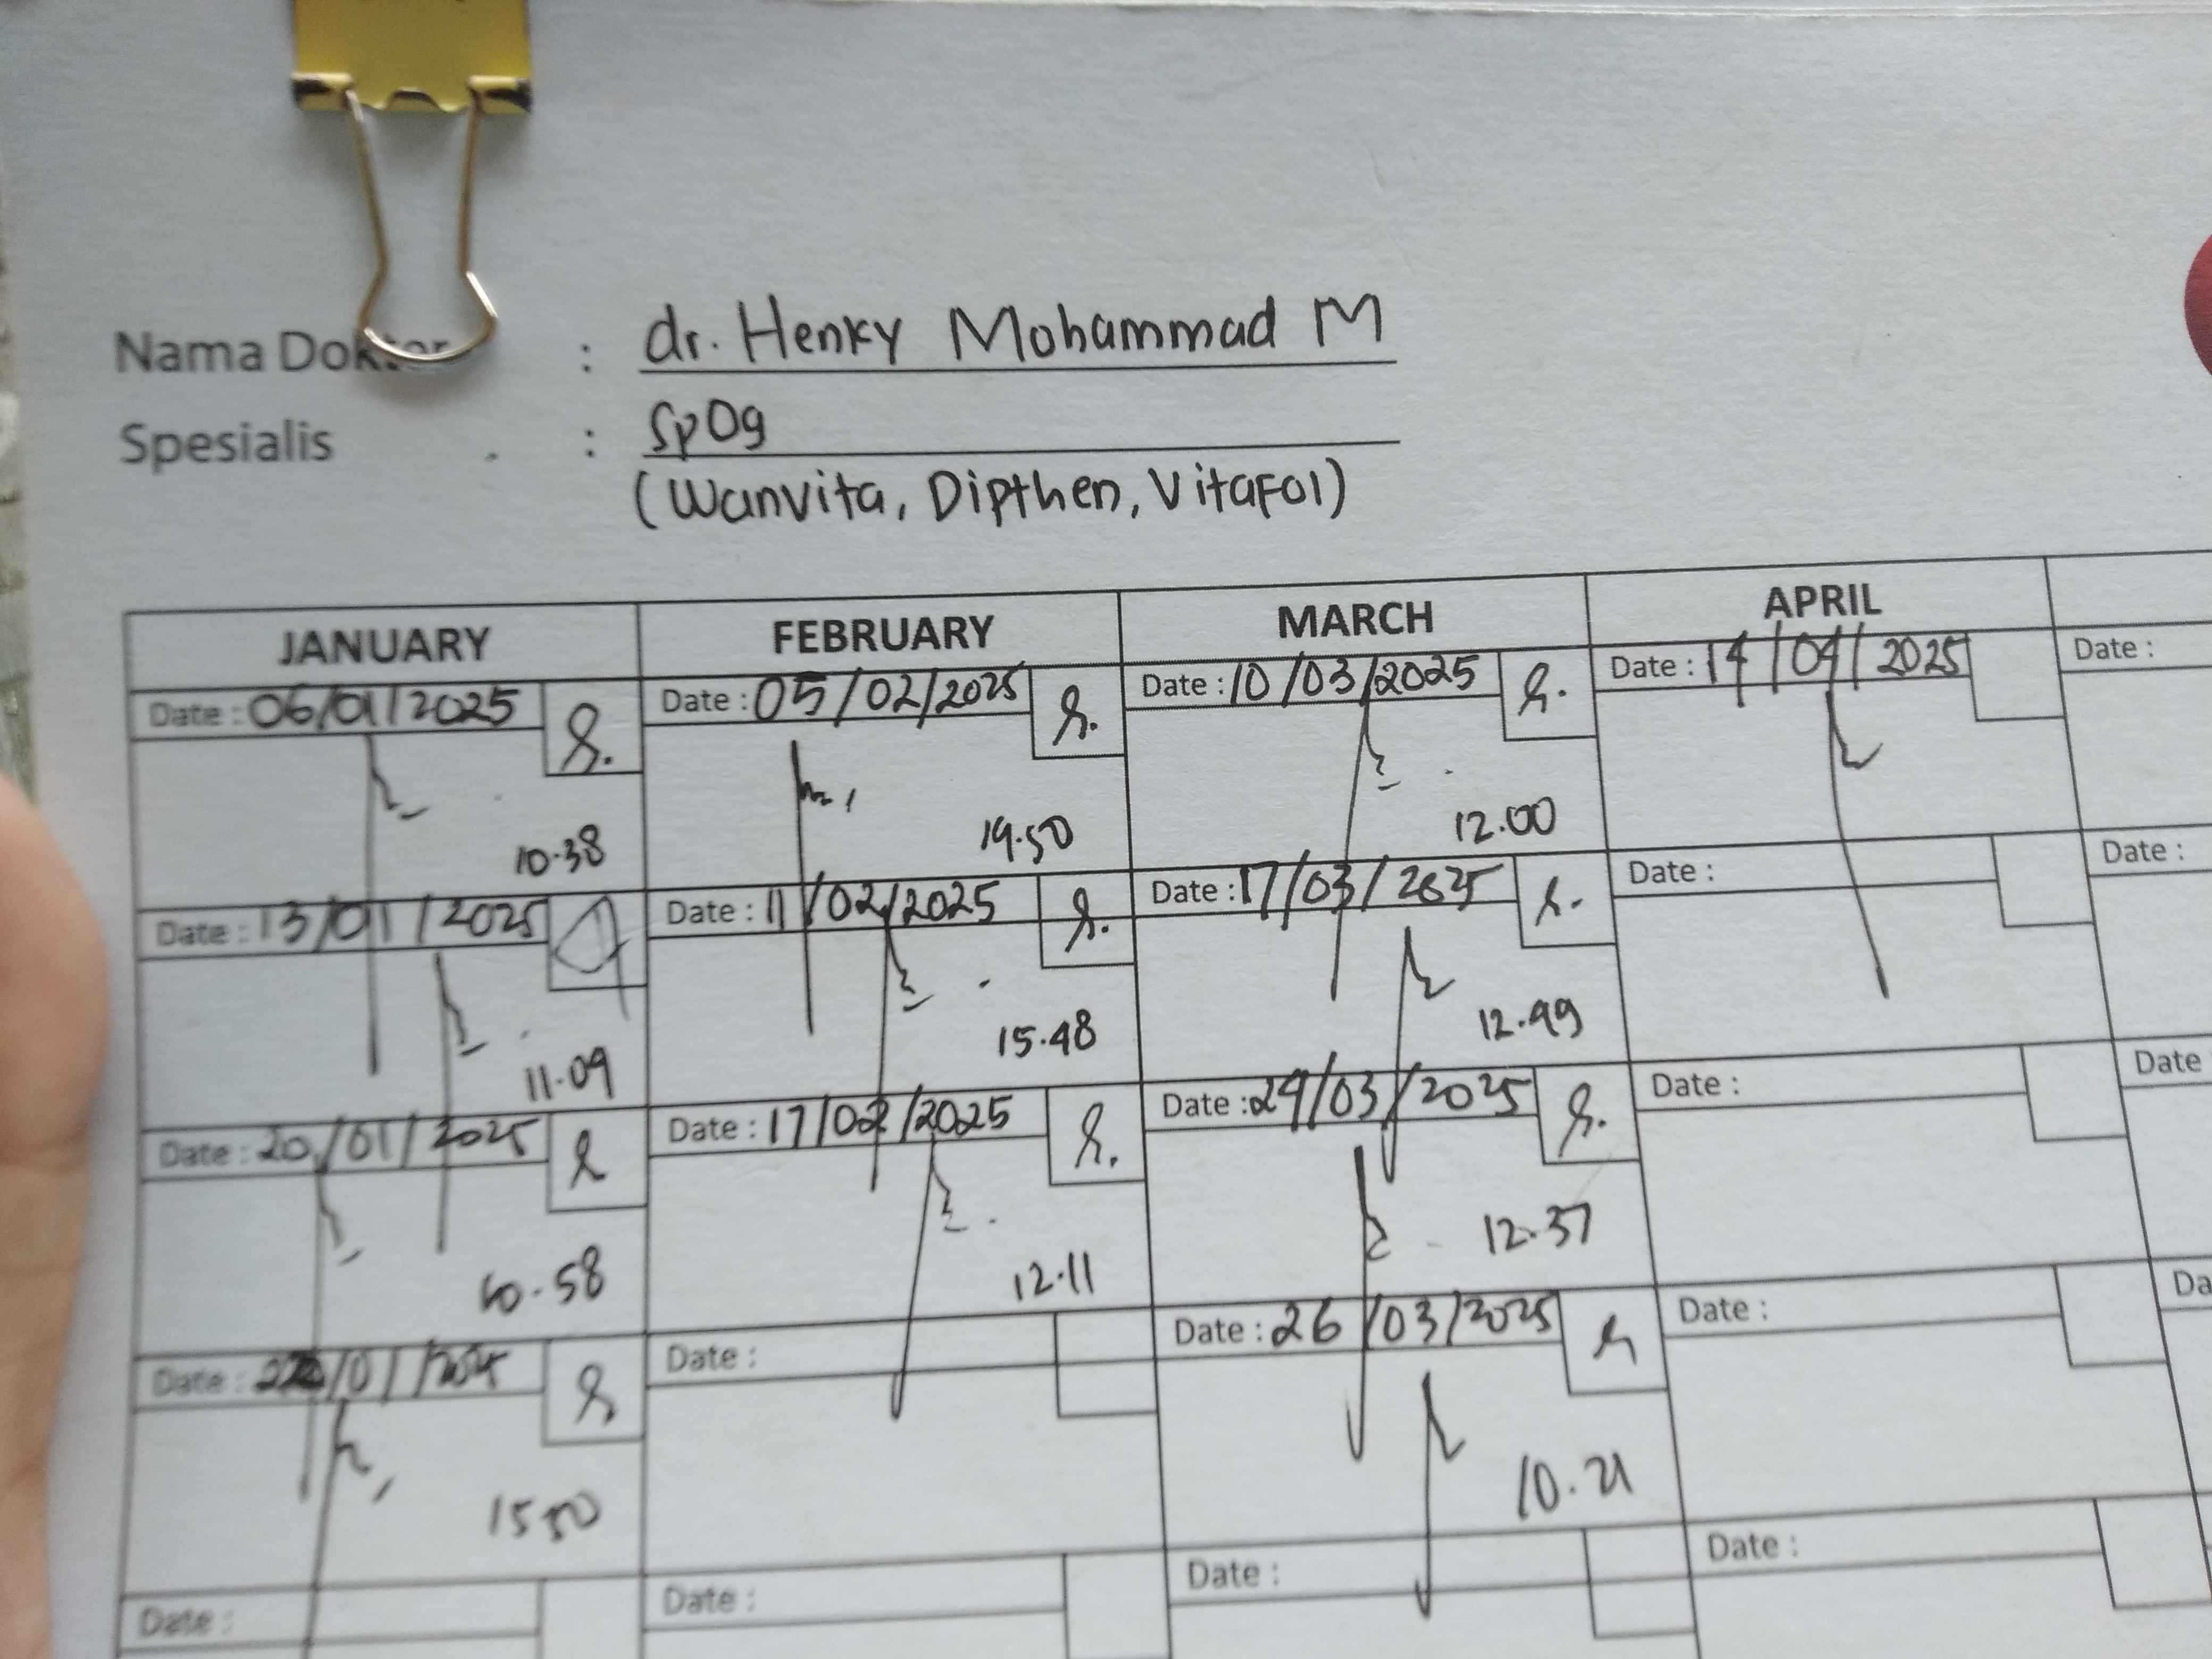 Nama Dokter : dr. Henky Mohammad M
Spesialis : SpOg
(Wanvita, Dipthen, Vitafol)
JANUARY FEBRUARY MARCH APRIL
Date : 06/01/2025 Date : 05/02/2025 Date : 10/03/2025 Date : 14/04/2025 Date :
10.38 19.50 12.00
Date : 13/01/2025 Date : 11/02/2025 Date : 17/03/2025 Date : Date :
11.09 15.48 12.49
Date : 20/01/2025 Date : 17/02/2025 Date : 24/03/2025 Date : Date
10.58 12.11 12.37
Date : Date : Date : 26/03/2025 Date : Da
15 50 10.21
Date : Date : Date : Date :